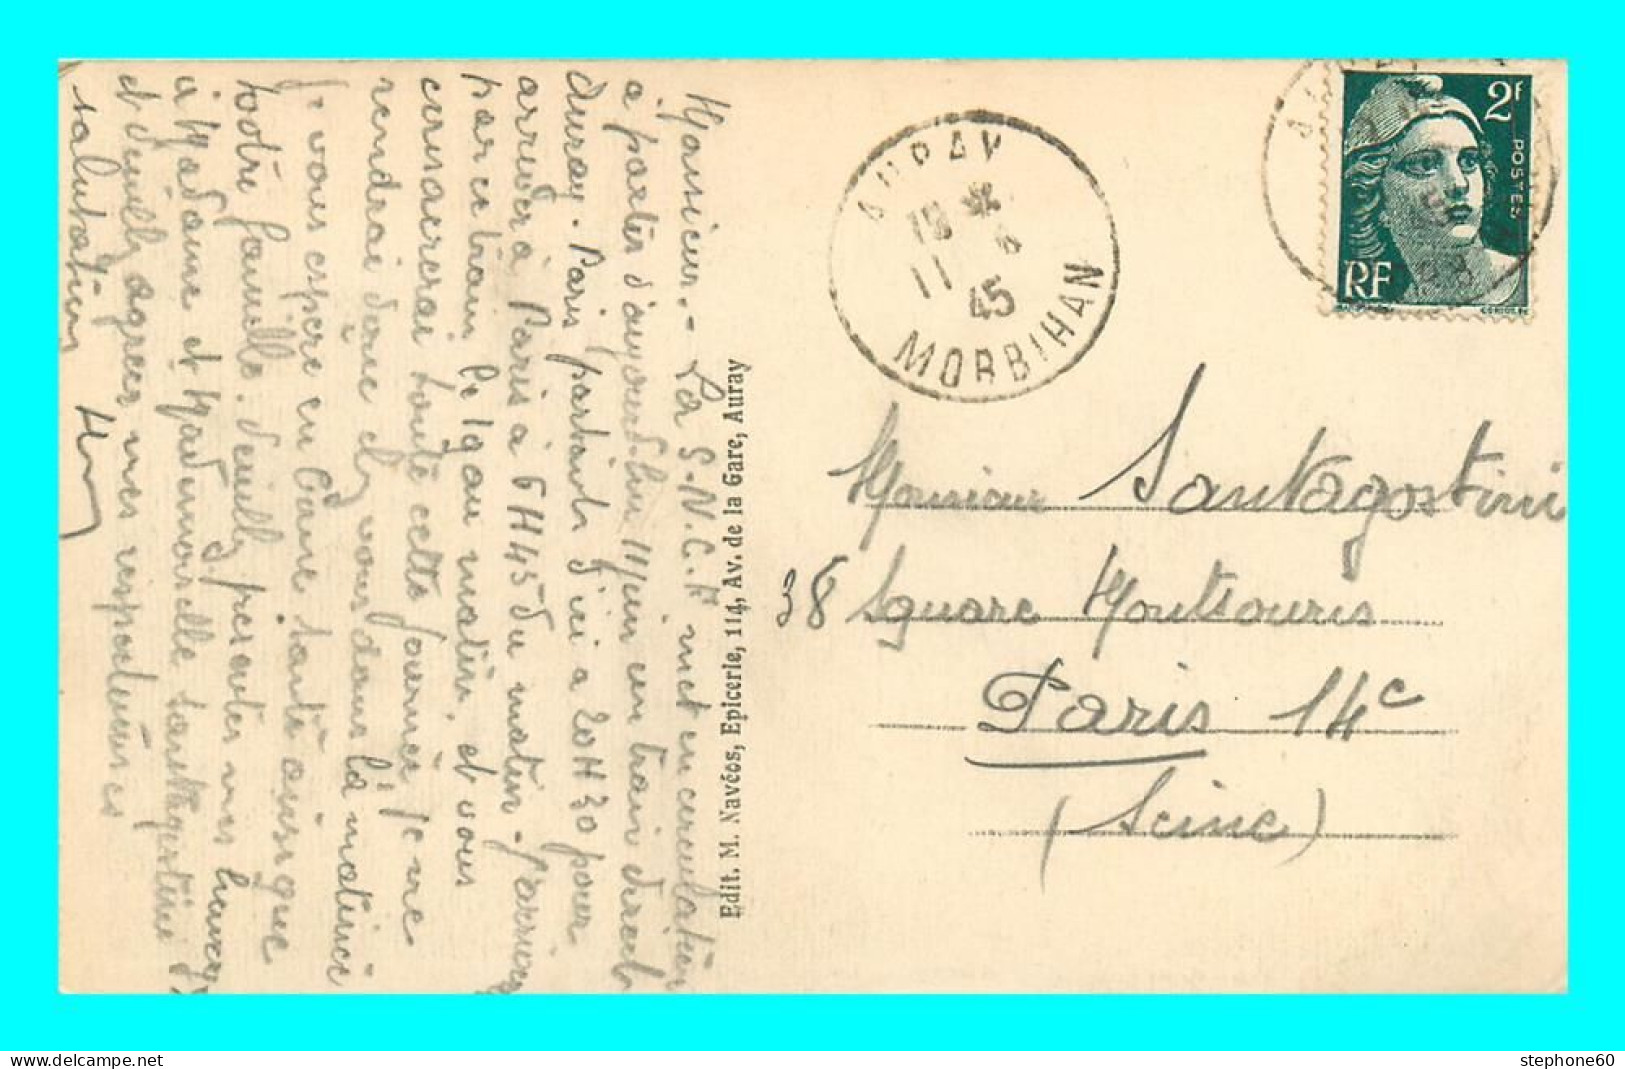 Monsieur. - La S.N.C.F met en circulation
a partir d'aujourd'hui 11/ un train direct
Auray - Paris partant d'ici a 20H30 pour
arriver à Paris à 6H45 du matin. J'arriverai
par ce train le 19 au matin, et vous
consacrerai toute cette journée, je me
rendrai donc chez vous dans la matinée
Je vous espère en bonne santé ainsi que
votre famille. Veuillez présenter mes
à Madame et Mademoiselle Santagostini
et veuillez agréer mes respectueuses
salutations
Edit. M. Navéos, Epicerie, 114, Av. de la Gare, Auray
AURAY
18 *
11
45
MORBIHAN
2F
POSTES
RF
Monsieur Santagostini
38 Square Montsouris
Paris 14e
(Seine)
stephone60